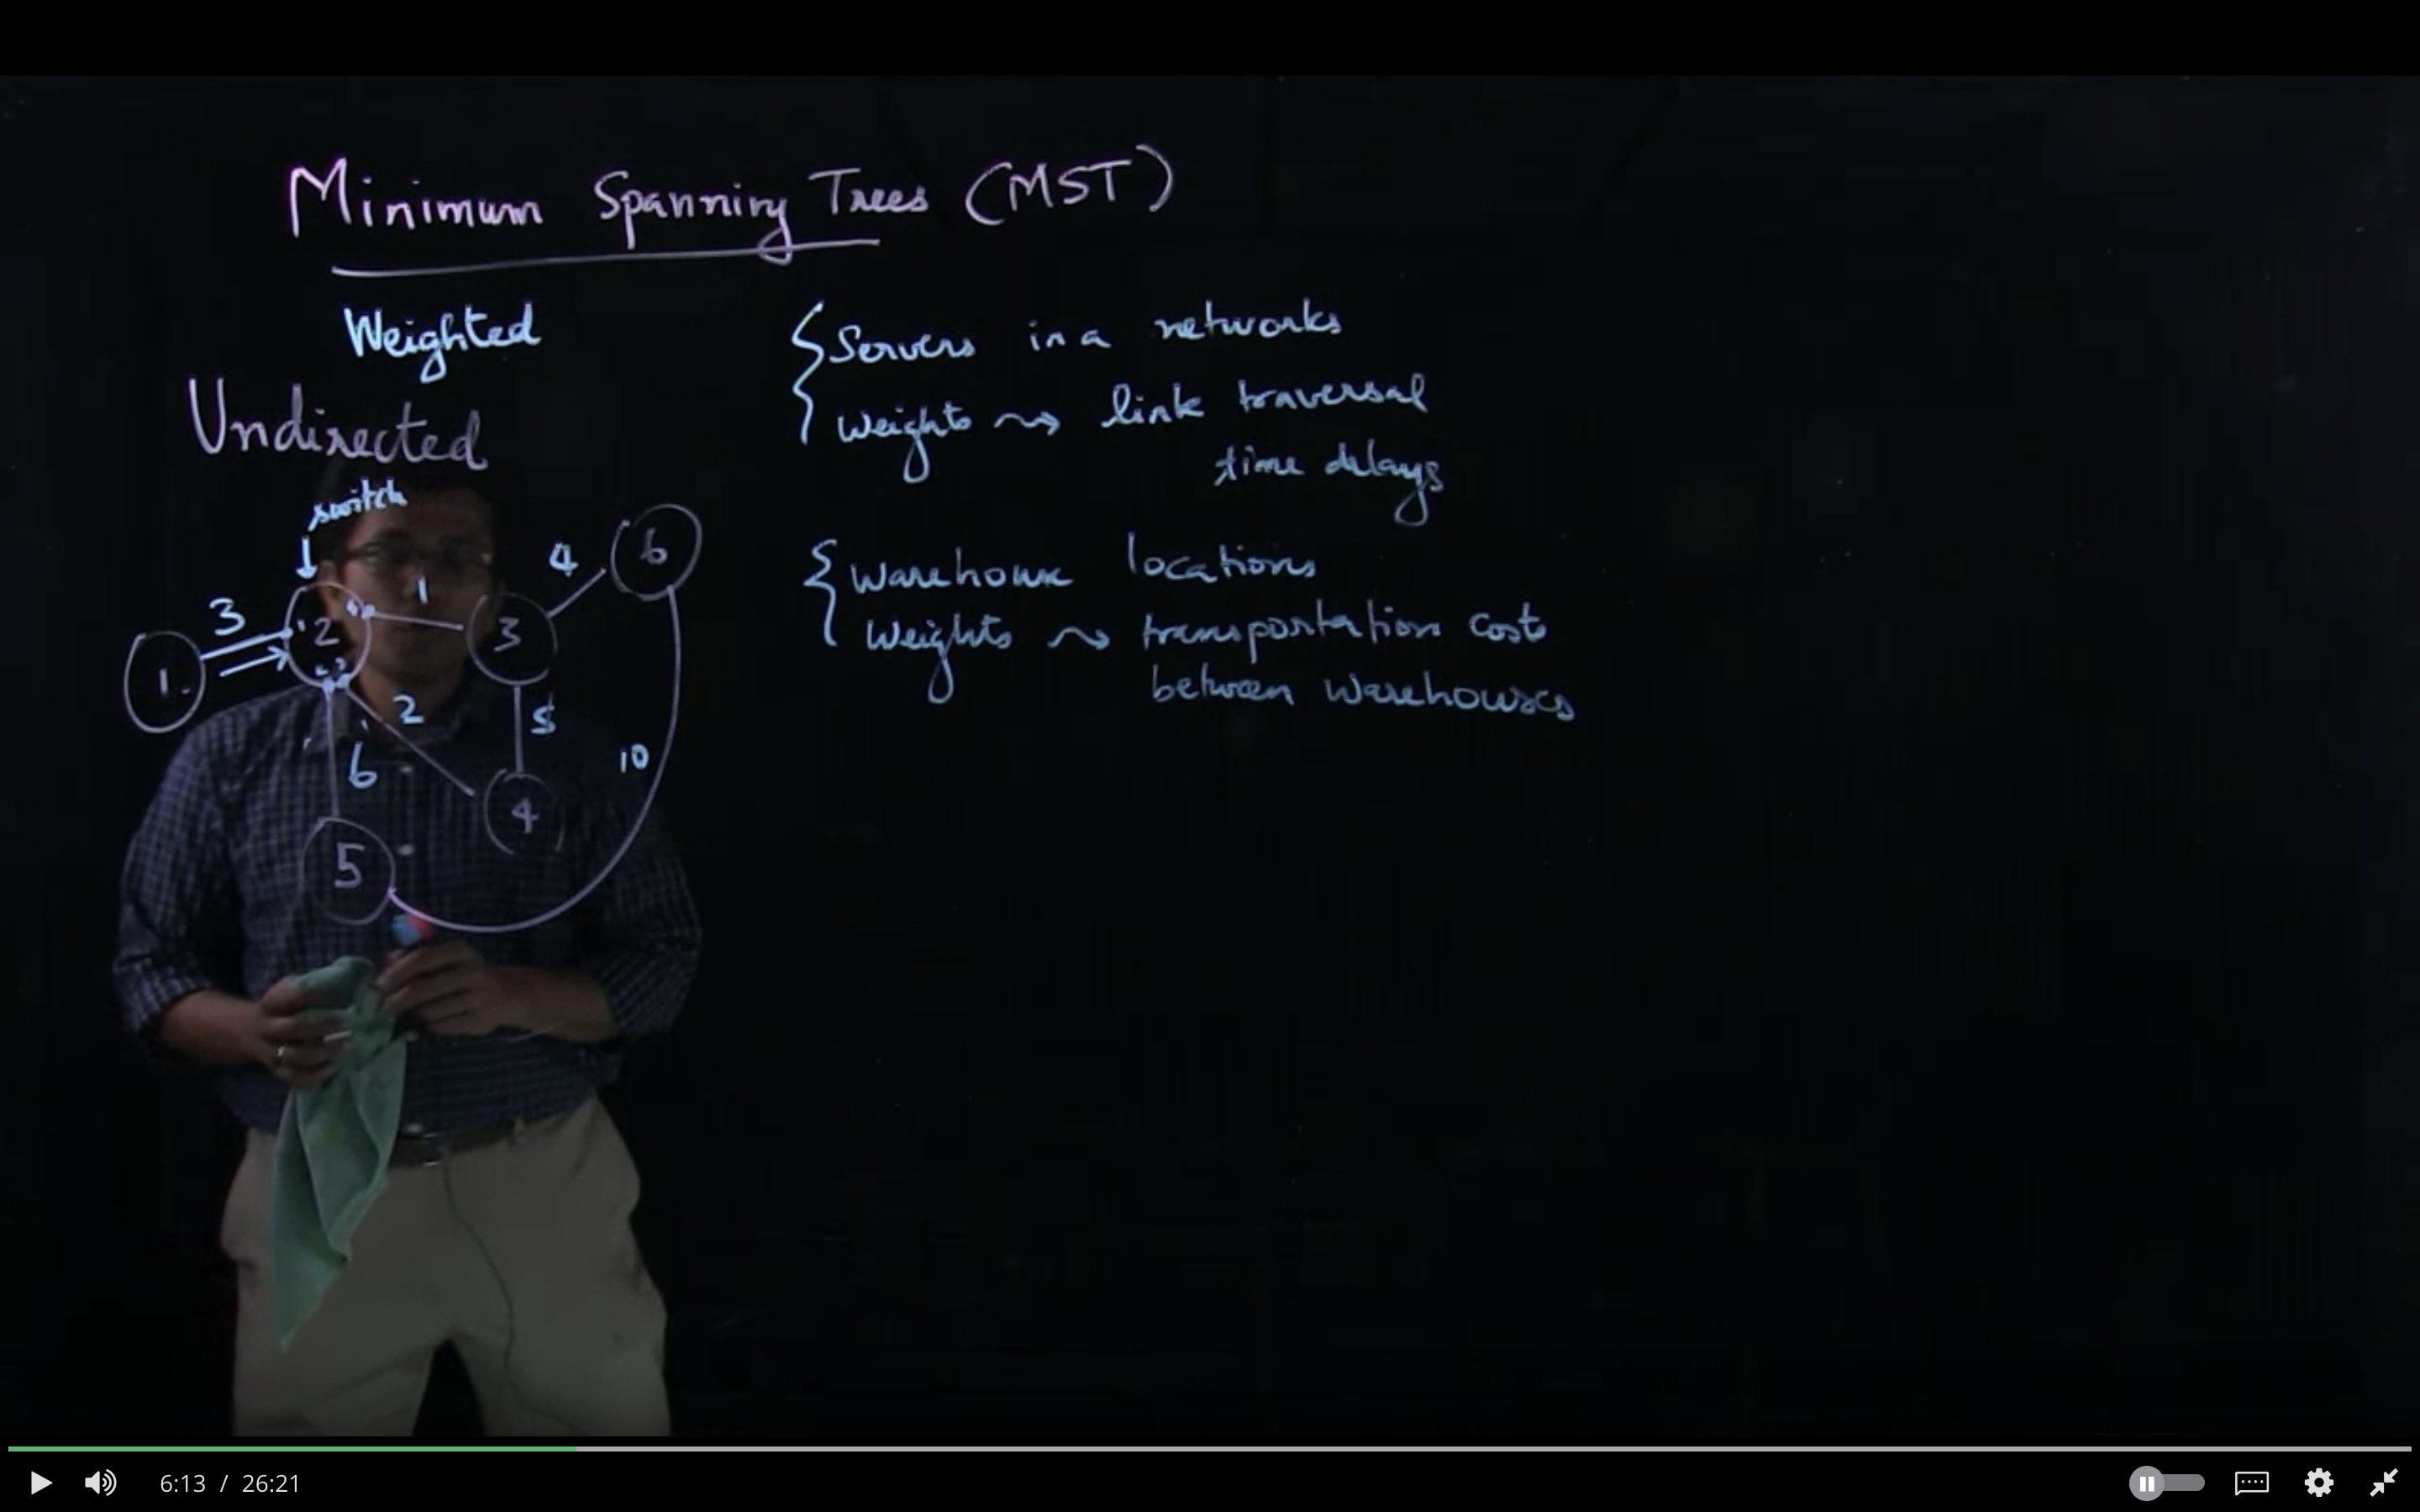 Minimum Spanning Trees (MST)
Weighted
Undirected
switch
Servers in a networks
Weights ⇝ link traversal
time delays
Warehouse locations
Weights ⇝ transportation cost
between warehouses
1
2
3
4
5
6
3
1
4
2
5
6
10
6:13 / 26:21